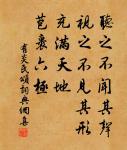 聽之不聞其聲
視之不見其形
充滿天地
苞裹六極
有炎氏頌 詞典網集